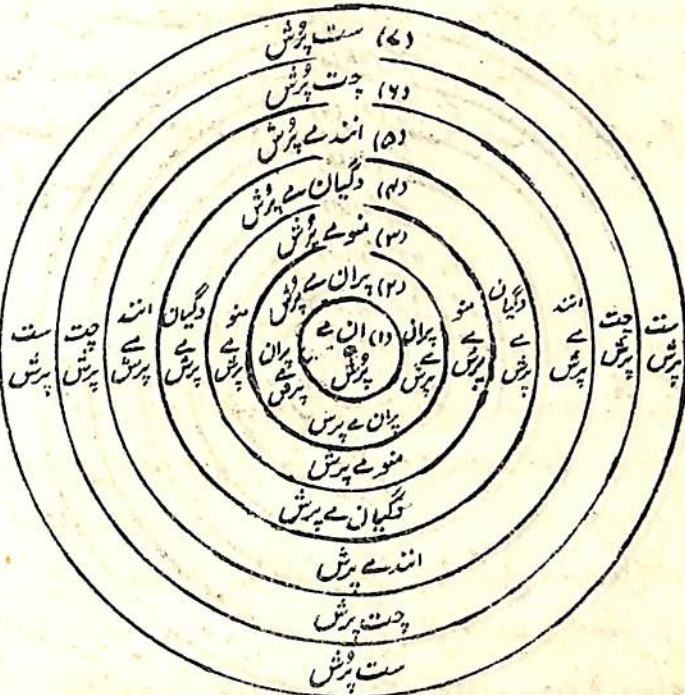 (۷) ست پُرُش
(۶) چت پُرُش
(۵) انند مے پُرُش
(۴) دگیان مے پُرُش
(۳) منو مے پُرُش
(۲) پران مے پُرُش
(۱) ان مے
پُرُش
ست
پرش
چت
پرش
انند
مے
پرش
دگیان
مے
پرش
منو
مے
پرش
پران
مے
پرش
پران
مے
پرش
منو
مے
پرش
دگیان
مے
پرش
انند
مے
پرش
چت
پرش
ست
پرش
پران مے پرس
منو مے پرش
دگیان مے پرش
انند مے پرش
چت پرش
ست پُرش